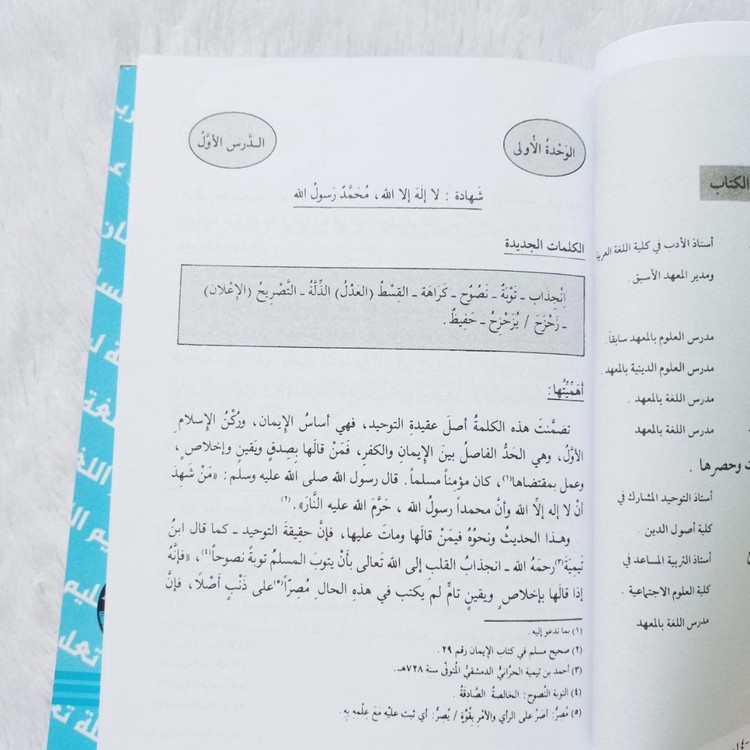 الوَحْدةُ الأُولى
الـدَّرس الأوَّلُ
شَهادة : لا إلهَ إلا الله، مُحَمَّدٌ رَسولُ الله
الكلمات الجديدة
اِنْجِذَاب ـ تَوْبَةٌ ـ نَصُوْح ـ كَرَاهَة ـ القِسْطُ (العَدْلُ) الذِّلَّةُ ـ التَّصْرِيحُ (الإعْلان)
ـ زَحْزَحَ / يُزَحْزِحُ ـ حَفِيظٌ.
أهَمِّيَّتُها:
تضمَّنتَ هذه الكلمةُ أصلَ عقيدةِ التوحيد، فهي أساسُ الإيمان، ورُكْنُ الإسلام
الأوَّلُ، وهي الحَدُّ الفاصلُ بينَ الإيمانِ والكفرِ، فَمَنْ قالَها بِصِدقٍ ويَقينٍ وإخلاصٍ،
وعمل بمقتضاها(١)، كان مؤمِناً مسلماً. قال رسول الله صلى الله عليه وسلم : «مَنْ شَهِدَ
أنْ لا إله إلّا الله وأنَّ محمداً رسولُ الله ، حَرَّمَ الله عليه النَّارَ».(٢)
وهـذا الحديثُ ونحْوُهُ فيمَنْ قالَها وماتَ عليها، فإنَّ حقيقةَ التوحيد ـ كما قال ابنُ
تَيمِيَةَ(٣)رحمَهُ الله ـ انجذابُ القلبِ إلى الله تعالى بأنْ يتوبَ المسلمُ توبةً نصوحاً(٤)، «فإنَّهُ
إذا قالَها بإخلاصٍ ويقينٍ تامٍّ لم يكتب في هذهِ الحالِ مُصِرّاً(٥)على ذَنْبٍ أصْلاً، فإنَّ
(١) بما تدعو إليه .
(٢) صحيح مسلم في كتاب الإيمان رقم ٢٩ .
(٣) أحمد بن تيمية الحرَّانيُّ الدمشقيُّ المُتوفَّى سنة ٧٢٨هـ.
(٤) التوبة النَّصوح: الخالصةُ الصَّادقةُ .
(٥) مُصِرٌّ: أصَرَّ على الرأي والأمْرِ بِقُوَّةٍ / يُصِرُّ: أي ثبت عليْهِ مَعَ عِلْمه بِهِ.
الكتاب
أستاذ الأدب في كلية اللغة
ومدير المعهد الأسبق .
مدرس العلوم بالمعهد سابقاً.
مدرس العلوم الدينية بالمعهد.
مدرس اللغة بالمعهد .
مدرس اللغة بالمعهد
وحصرها .
أستاذ التوحيد المشارك في
كلية أصول الدين
أستاذ التربية المساعد في
كلية العلوم الاجتماعية .
مدرس اللغة بالمعهد